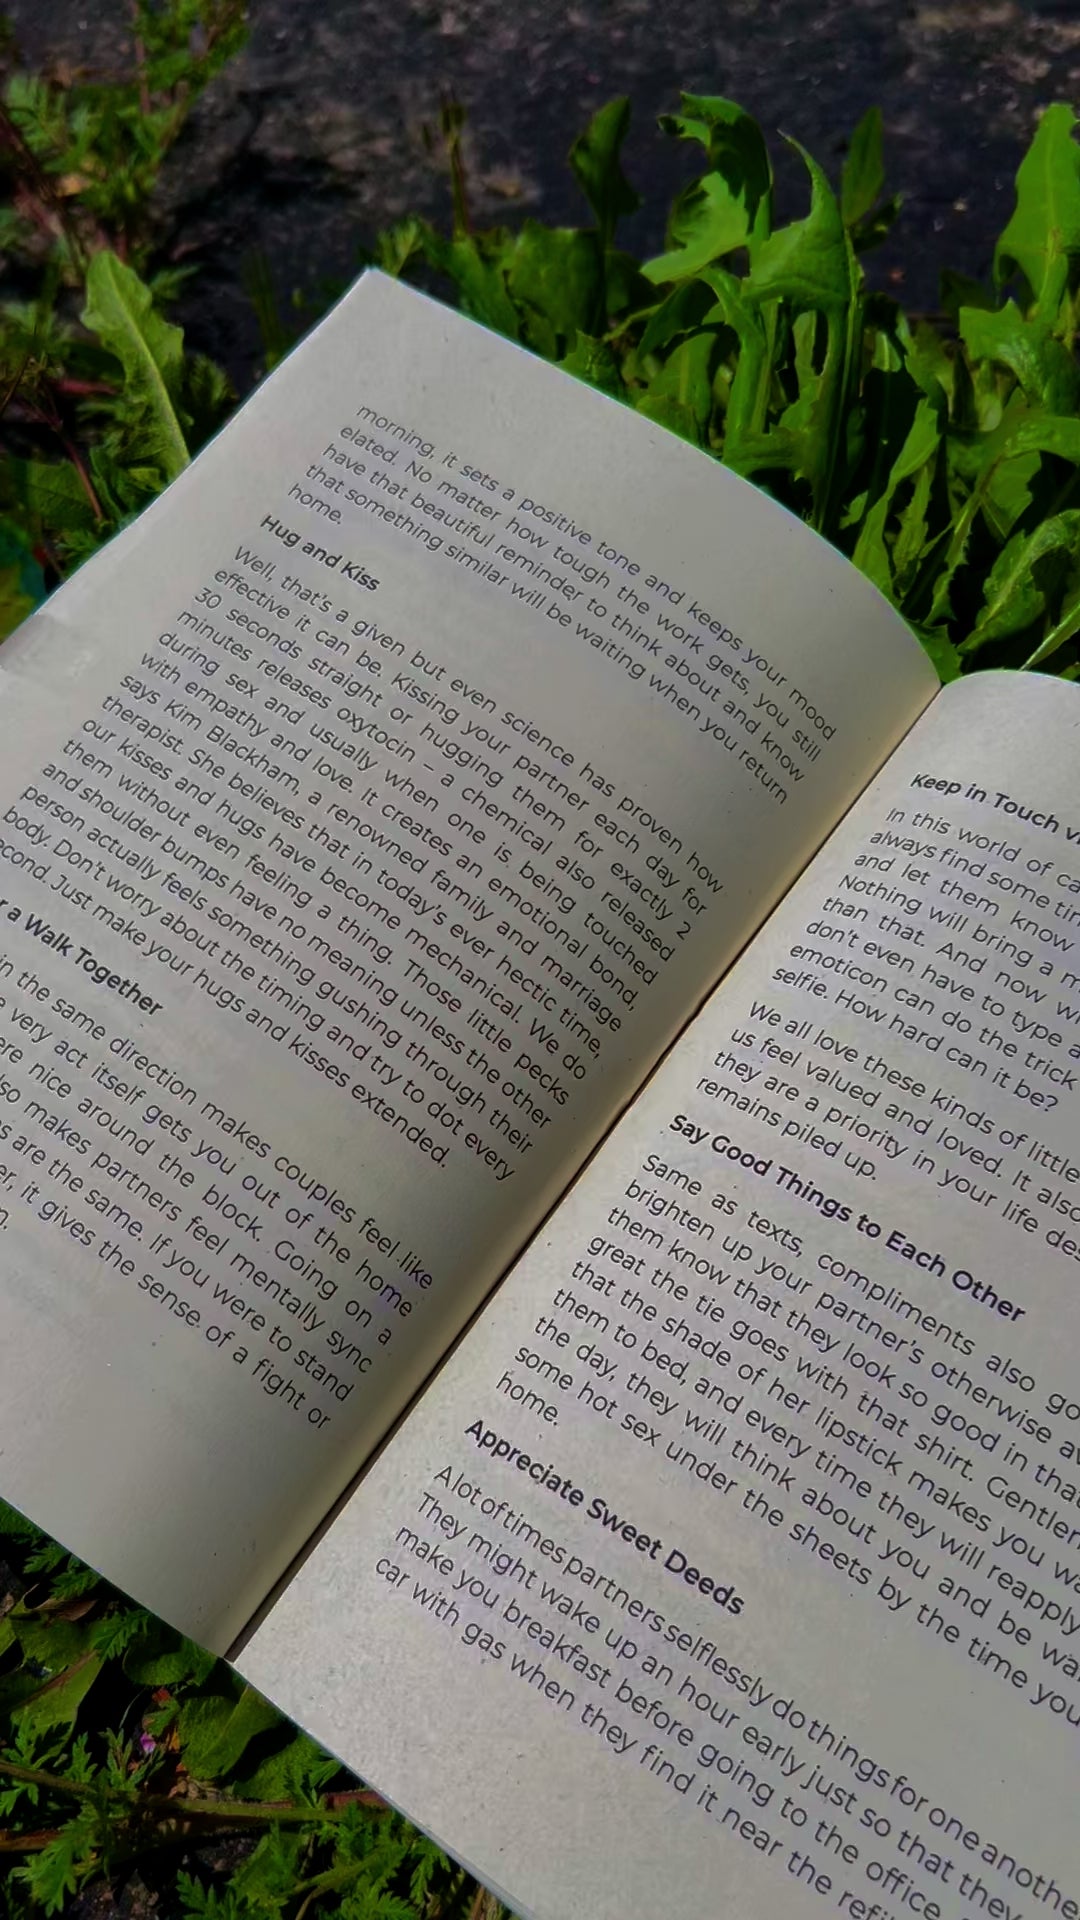 morning, it sets a positive tone and keeps your mood
elated. No matter how tough the work gets, you still
have that beautiful reminder to think about and know
that something similar will be waiting when you return
home.
Hug and Kiss
Well, that's a given but even science has proven how
effective it can be. Kissing your partner each day for
30 seconds straight or hugging them for exactly 2
minutes releases oxytocin – a chemical also released
during sex and usually when one is being touched
with empathy and love. It creates an emotional bond,
says Kim Blackham, a renowned family and marriage
therapist. She believes that in today's ever hectic time,
our kisses and hugs have become mechanical. We do
them without even feeling a thing. Those little pecks
and shoulder bumps have no meaning unless the other
person actually feels something gushing through their
body. Don't worry about the timing and try to dot every
second. Just make your hugs and kisses extended.
a Walk Together
in the same direction makes couples feel like
very act itself gets you out of the home
nice around the block. Going on a
makes partners feel mentally sync
are the same. If you were to stand
it gives the sense of a fight or
Keep in Touch
In this world of
always find some
and let them know
Nothing will bring a
than that. And now
don't even have to type a
emoticon can do the trick
selfie. How hard can it be?
We all love these kinds of little
us feel valued and loved. It also
they are a priority in your life
remains piled up.
Say Good Things to Each Other
Same as texts, compliments also
brighten up your partner's otherwise
them know that they look so good in that
great the tie goes with that shirt.
that the shade of her lipstick makes you
them to bed, and every time they will reapply
the day, they will think about you and be
some hot sex under the sheets by the time you
home.
Appreciate Sweet Deeds
A lot of times partners selflessly do things for one
They might wake up an hour early just so that they
make you breakfast before going to the office
car with gas when they find it near the